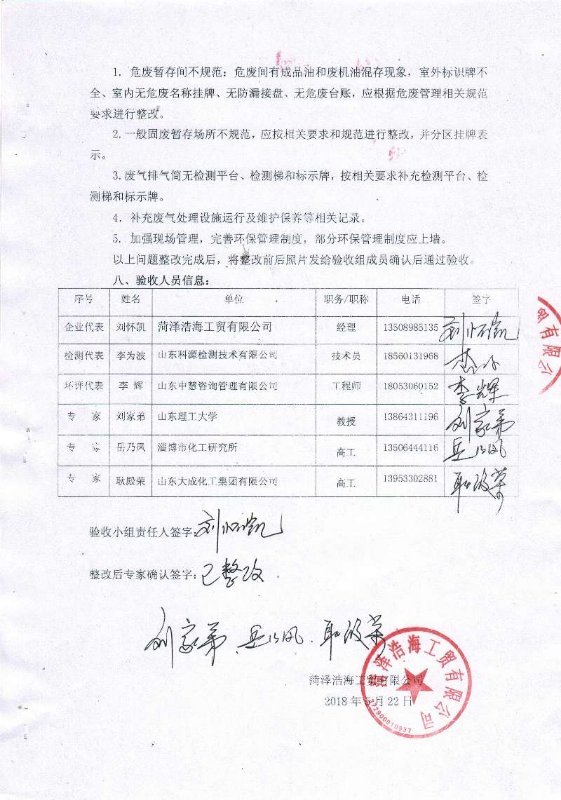 1. 危废暂存间不规范：危废间有成品油和废机油混存现象，室外标识牌不
全、室内无危废名称挂牌、无防漏接盘、无危废台账，应根据危废管理相关规范
要求进行整改。
2.一般固废暂存场所不规范，应按相关要求和规范进行整改，并分区挂牌表
示。
3.废气排气筒无检测平台、检测梯和标示牌，按相关要求补充检测平台、检
测梯和标示牌。
4. 补充废气处理设施运行及维护保养等相关记录。
5. 加强现场管理，完善环保管理制度，部分环保管理制度应上墙。
以上问题整改完成后，将整改前后照片发给验收组成员确认后通过验收。
八、验收人员信息：
序号 姓名 单位 职务/职称 电话 签字
企业代表 刘怀凯 菏泽浩海工贸有限公司 经理 13508985135 刘怀凯
检测代表 李为波 山东科源检测技术有限公司 技术员 18560131968
环评代表 李辉 山东中慧咨询管理有限公司 工程师 18053060152 李辉
专家 刘家弟 山东理工大学 教授 13864311196 刘家弟
专家 岳乃凤 淄博市化工研究所 高工 13506444116 岳乃凤
专家 耿殿荣 山东大成化工集团有限公司 高工 13953302881 耿殿荣
验收小组责任人签字：刘怀凯
整改后专家确认签字：已整改
刘家弟 岳乃凤 耿殿荣
菏泽浩海工贸有限公司
2018年5月22日
菏泽浩海工贸有限公司
有限公